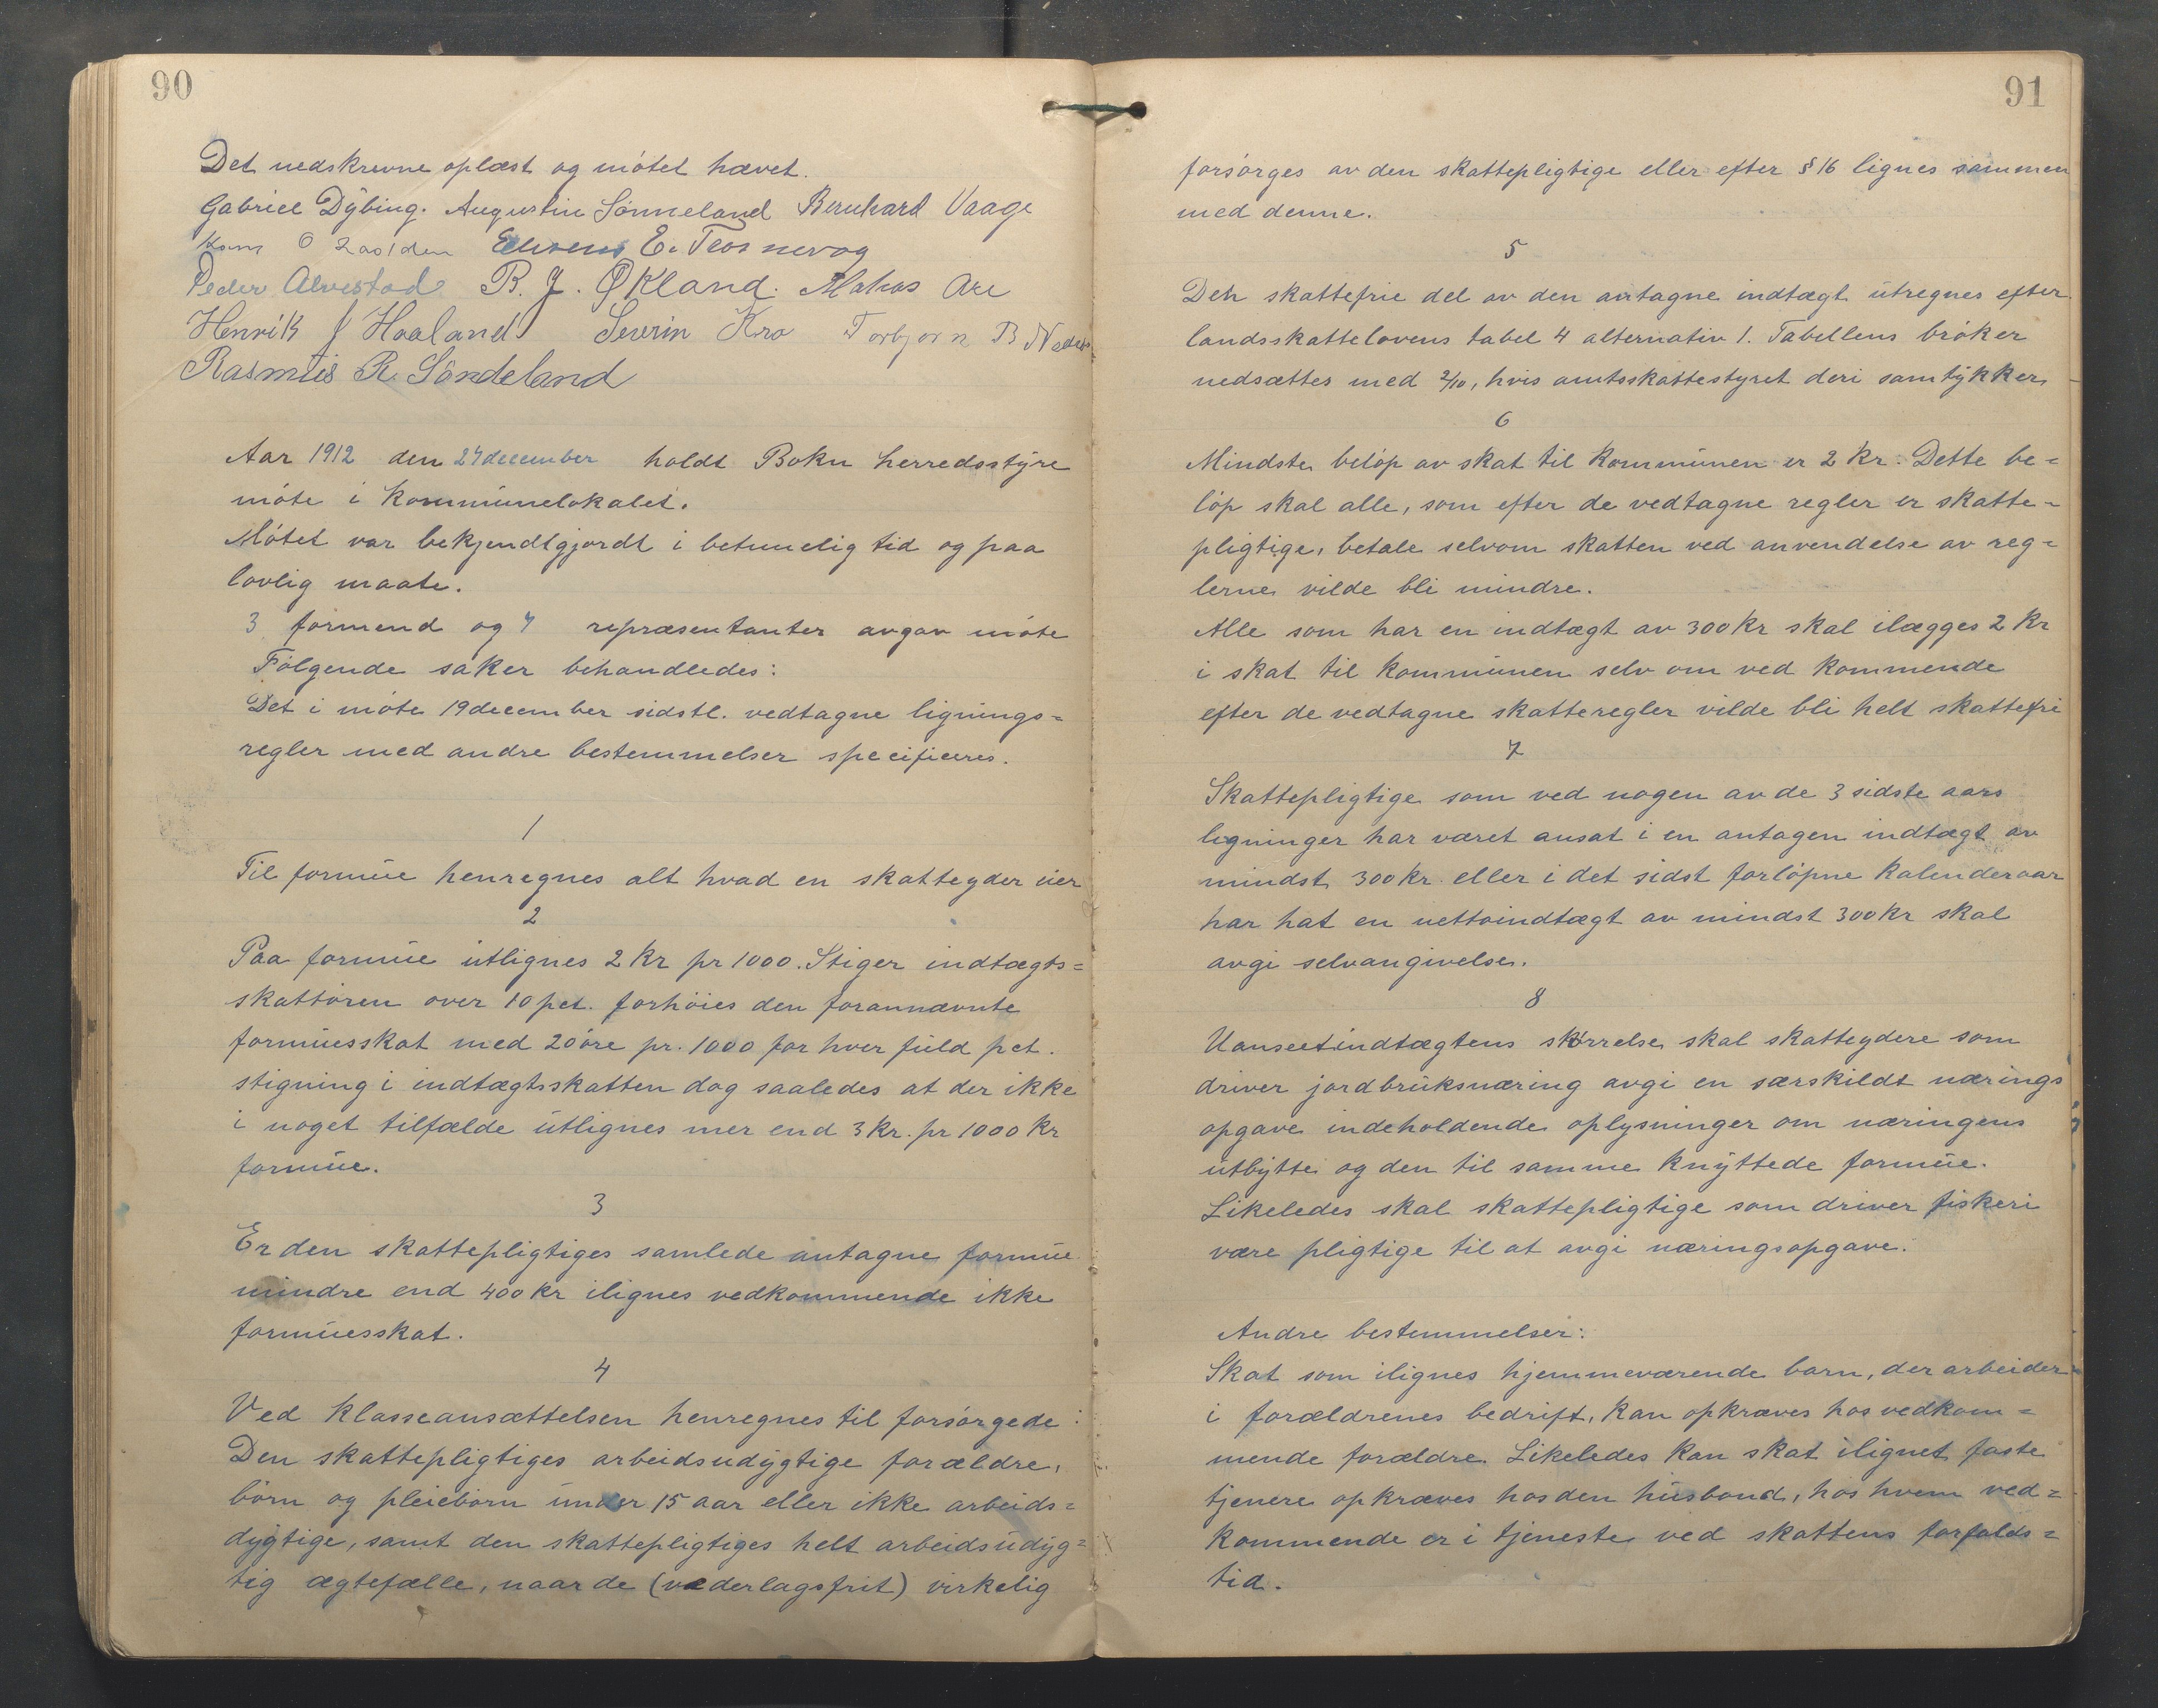 90
Det nedskrevne oplæst og møtet hævet.
Gabriel Dybing. Augustin Sønneland Bernhard Vaage
O E. Trosnavog
Peder Alvestad R. J. Økland. Matias Are
Henrik J Haaland Severin Kro Torbjørn B
Rasmus R. Søndeland
Aar 1912 den 27 december holdt Bokn herredsstyre
møte i kommunelokalet.
Møtet var bekjendtgjordt i betimelig tid og paa
lovlig maate.
3 formend og 7 repræsentanter avgav møte
Følgende saker behandledes:
Det i møte 19 december sidstl. vedtagne lignings=
regler med andre bestemmelser specificeres.
1
Til formue henregnes alt hvad en skatteyder eier
2
Paa formue utlignes 2 kr pr 1000. Stiger indtægts=
skattøren over 10 pct. forhøies den forannævnte
formuesskat med 20 øre pr. 1000 for hver fuld pct.
stigning i indtægtsskatten dog saaledes at der ikke
i noget tilfælde utlignes mer end 3 kr. pr 1000 kr
formue.
3
Er den skattepligtiges samlede antagne formue
mindre end 400 kr ilignes vedkommende ikke
formuesskat.
4
Ved klasseansættelsen henregnes til forsørgede:
Den skattepligtiges arbeidsudygtige forældre,
børn og pleiebørn under 15 aar eller ikke arbeids=
dygtige, samt den skattepligtiges helt arbeidsudyg=
tig ægtefælle, naar de (vederlagsfrit) virkelig
91
forsørges av den skattepligtige eller efter § 16 lignes sammen
med denne.
5
Den skattefrie del av den antagne indtægt utregnes efter
landsskattelovens tabel 4 alternativ 1. Tabellens brøker
nedsættes med 2/10, hvis amtsskattestyret deri samtykker
6
Mindste beløp av skat til kommunen er 2 kr. Dette be=
løp skal alle, som efter de vedtagne regler er skatte=
pligtige, betale selvom skatten ved anvendelse av reg=
lerne vilde bli mindre.
Alle som har en indtægt av 300 kr skal ilægges 2 kr
i skat til kommunen selv om ved kommende
efter de vedtagne skatteregler vilde bli helt skattefri
7
Skattepligtige som ved nogen av de 3 sidste aars
ligninger har været ansat i en antagen indtægt av
mindst 300 kr. eller i det sidst forløpne kalenderaar
har hat en nettoindtægt av mindst 300 kr skal
avgi selvangivelse.
8
Uanseet indtægtens størrelse skal skatteydere som
driver jordbruksnæring avgi en særskildt nærings
opgave indeholdende oplysninger om næringens
utbytte og den til samme knyttede formue.
Likeledes skal skattepligtige som driver fiskeri
være pligtige til at avgi næringsopgave.
Andre bestemmelser:
Skat som ilignes hjemmeværende barn, der arbeider
i forældrenes bedrift, kan opkræves hos vedkom=
mende forældre. Likeledes kan skat ilignet faste
tjenere opkræves hos den husbond, hos hvem ved=
kommende er i tjeneste ved skattens forfalds=
tid.